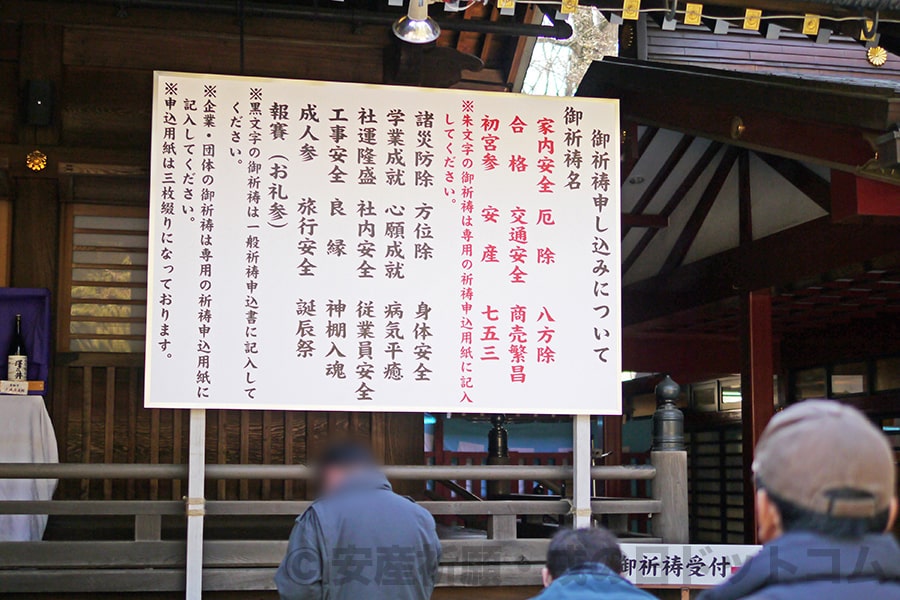 御祈祷申し込みについて
御祈祷名
家内安全 厄除 八方除
合格 交通安全 商売繁昌
初宮参 安産 七五三
※朱文字の御祈祷は専用の祈祷申込用紙に記入
してください。
諸災防除 方位除 身体安全
学業成就 心願成就 病気平癒
社運隆盛 社内安全 従業員安全
工事安全 良縁 神棚入魂
成人参 旅行安全 誕辰祭
報賽(お礼参)
※黒文字の御祈祷は一般祈祷申込書に記入して
ください。
※企業・団体の御祈祷は専用の祈祷申込用紙に
記入してください。
※申込用紙は三枚綴りになっております。
御祈祷受付
©安産祈願・ドットコム